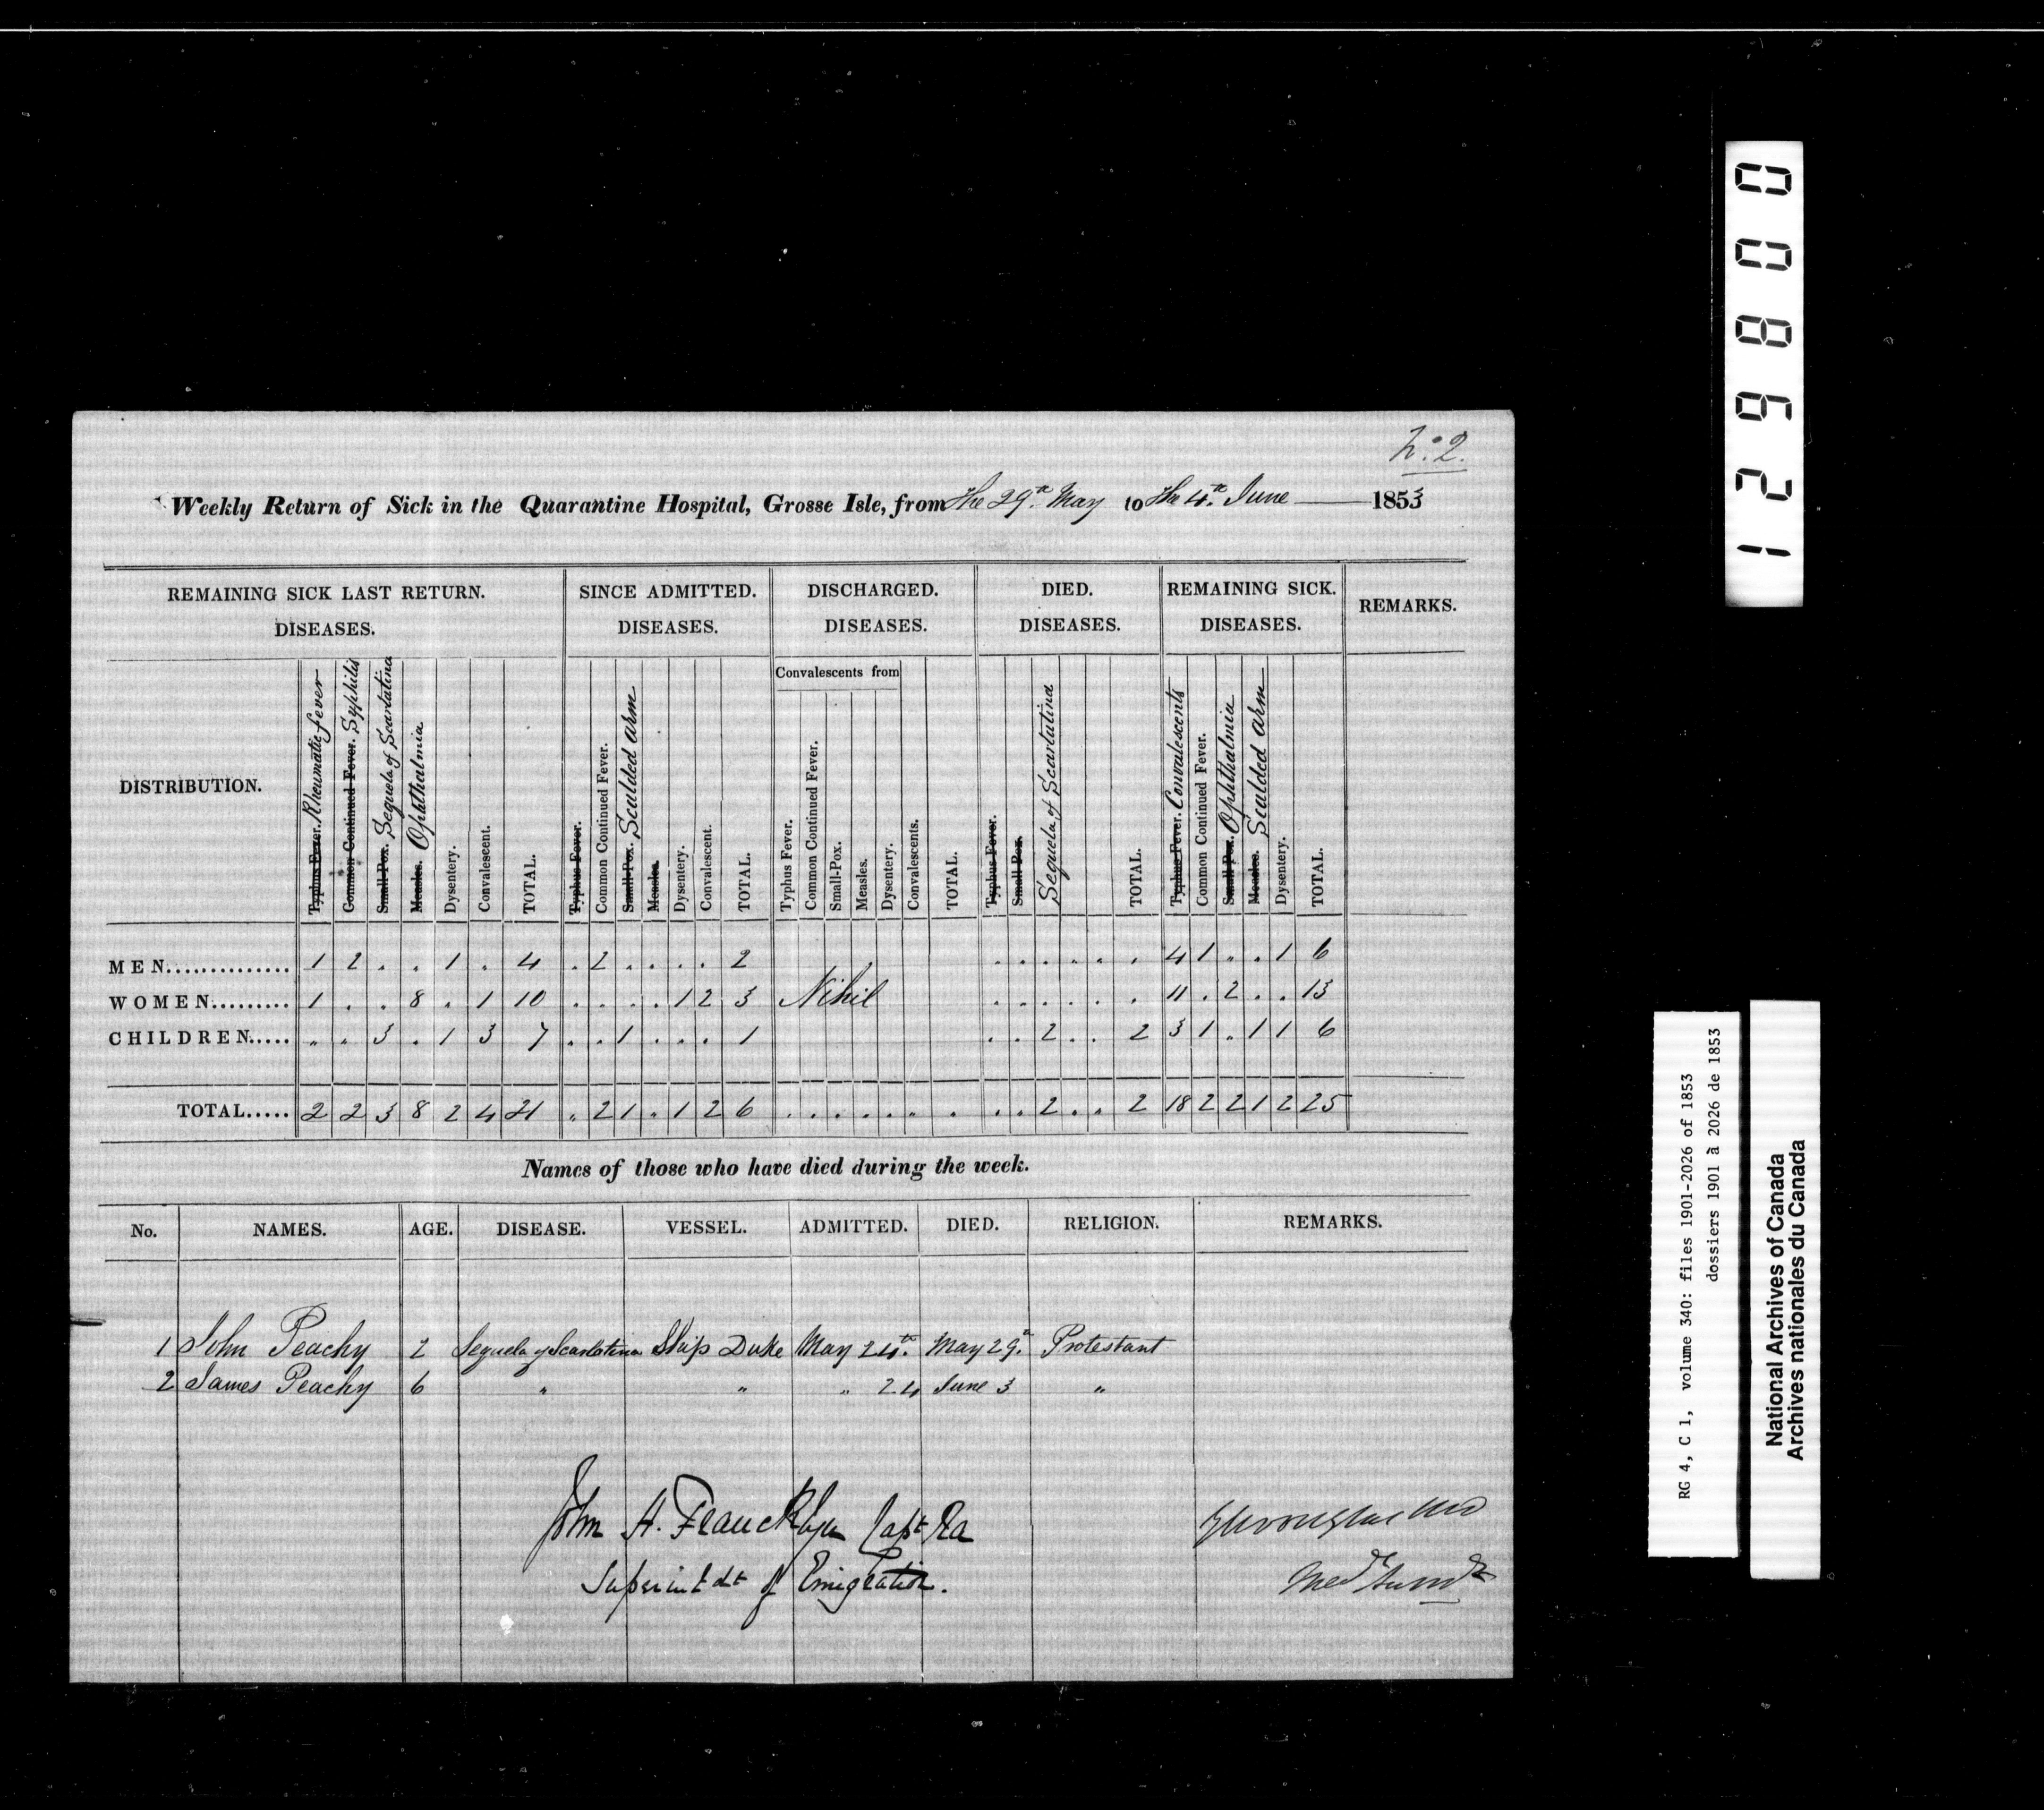 No. 2.
Weekly Return of Sick in the Quarantine Hospital, Grosse Isle, from the 29th May to the 4th June 1853
REMAINING SICK LAST RETURN. DISEASES. SINCE ADMITTED. DISEASES. DISCHARGED. DISEASES. DIED. DISEASES. REMAINING SICK. DISEASES. REMARKS.
Convalescents from
DISTRIBUTION. Typhus Fever. Rheumatic fever Common Continued Fever. Syphilis Small-Pox. Sequela of Scarlatina Measles. Ophthalmia Dysentery. Convalescent. TOTAL. Typhus Fever. Common Continued Fever. Small-Pox. Scalded arm Measles. Dysentery. Convalescent. TOTAL. Typhus Fever. Common Continued Fever. Small-Pox. Measles. Dysentery. Convalescents. TOTAL. Typhus Fever. Small Pox. Sequela of Scarlatina TOTAL. Typhus Fever. Convalescents Common Continued Fever. Small-Pox. Ophthalmia Measles. Scalded arm Dysentery. TOTAL.
MEN.............. 1 2 . . 1 . 4 . 2 . . . . 2 . . . . . . 4 1 . . 1 6
WOMEN......... 1 . . 8 . 1 10 . . . . 1 2 3 Nihil . . . . . . 11 . 2 . . 13
CHILDREN..... " " 3 . 1 3 7 . . 1 . . . 1 . . 2 . . 2 3 1 . 1 1 6
TOTAL..... 2 2 3 8 2 4 21 . 2 1 . 1 2 6 . . . . . . . . . 2 . . 2 18 2 2 1 2 25
Names of those who have died during the week.
No. NAMES. AGE. DISEASE. VESSEL. ADMITTED. DIED. RELIGION. REMARKS.
1 John Peachy 2 Sequela of Scarlatina Ship Duke May 24th. May 29th. Protestant
2 James Peachy 6 " " " 24 June 3 "
John A. Francklyn Capt Ra
Superintdt of Emigration.
Med Supdt
1 2 9 8 0 0
RG 4, C 1, volume 340: files 1901-2026 of 1853
dossiers 1901 à 2026 de 1853
National Archives of Canada
Archives nationales du Canada